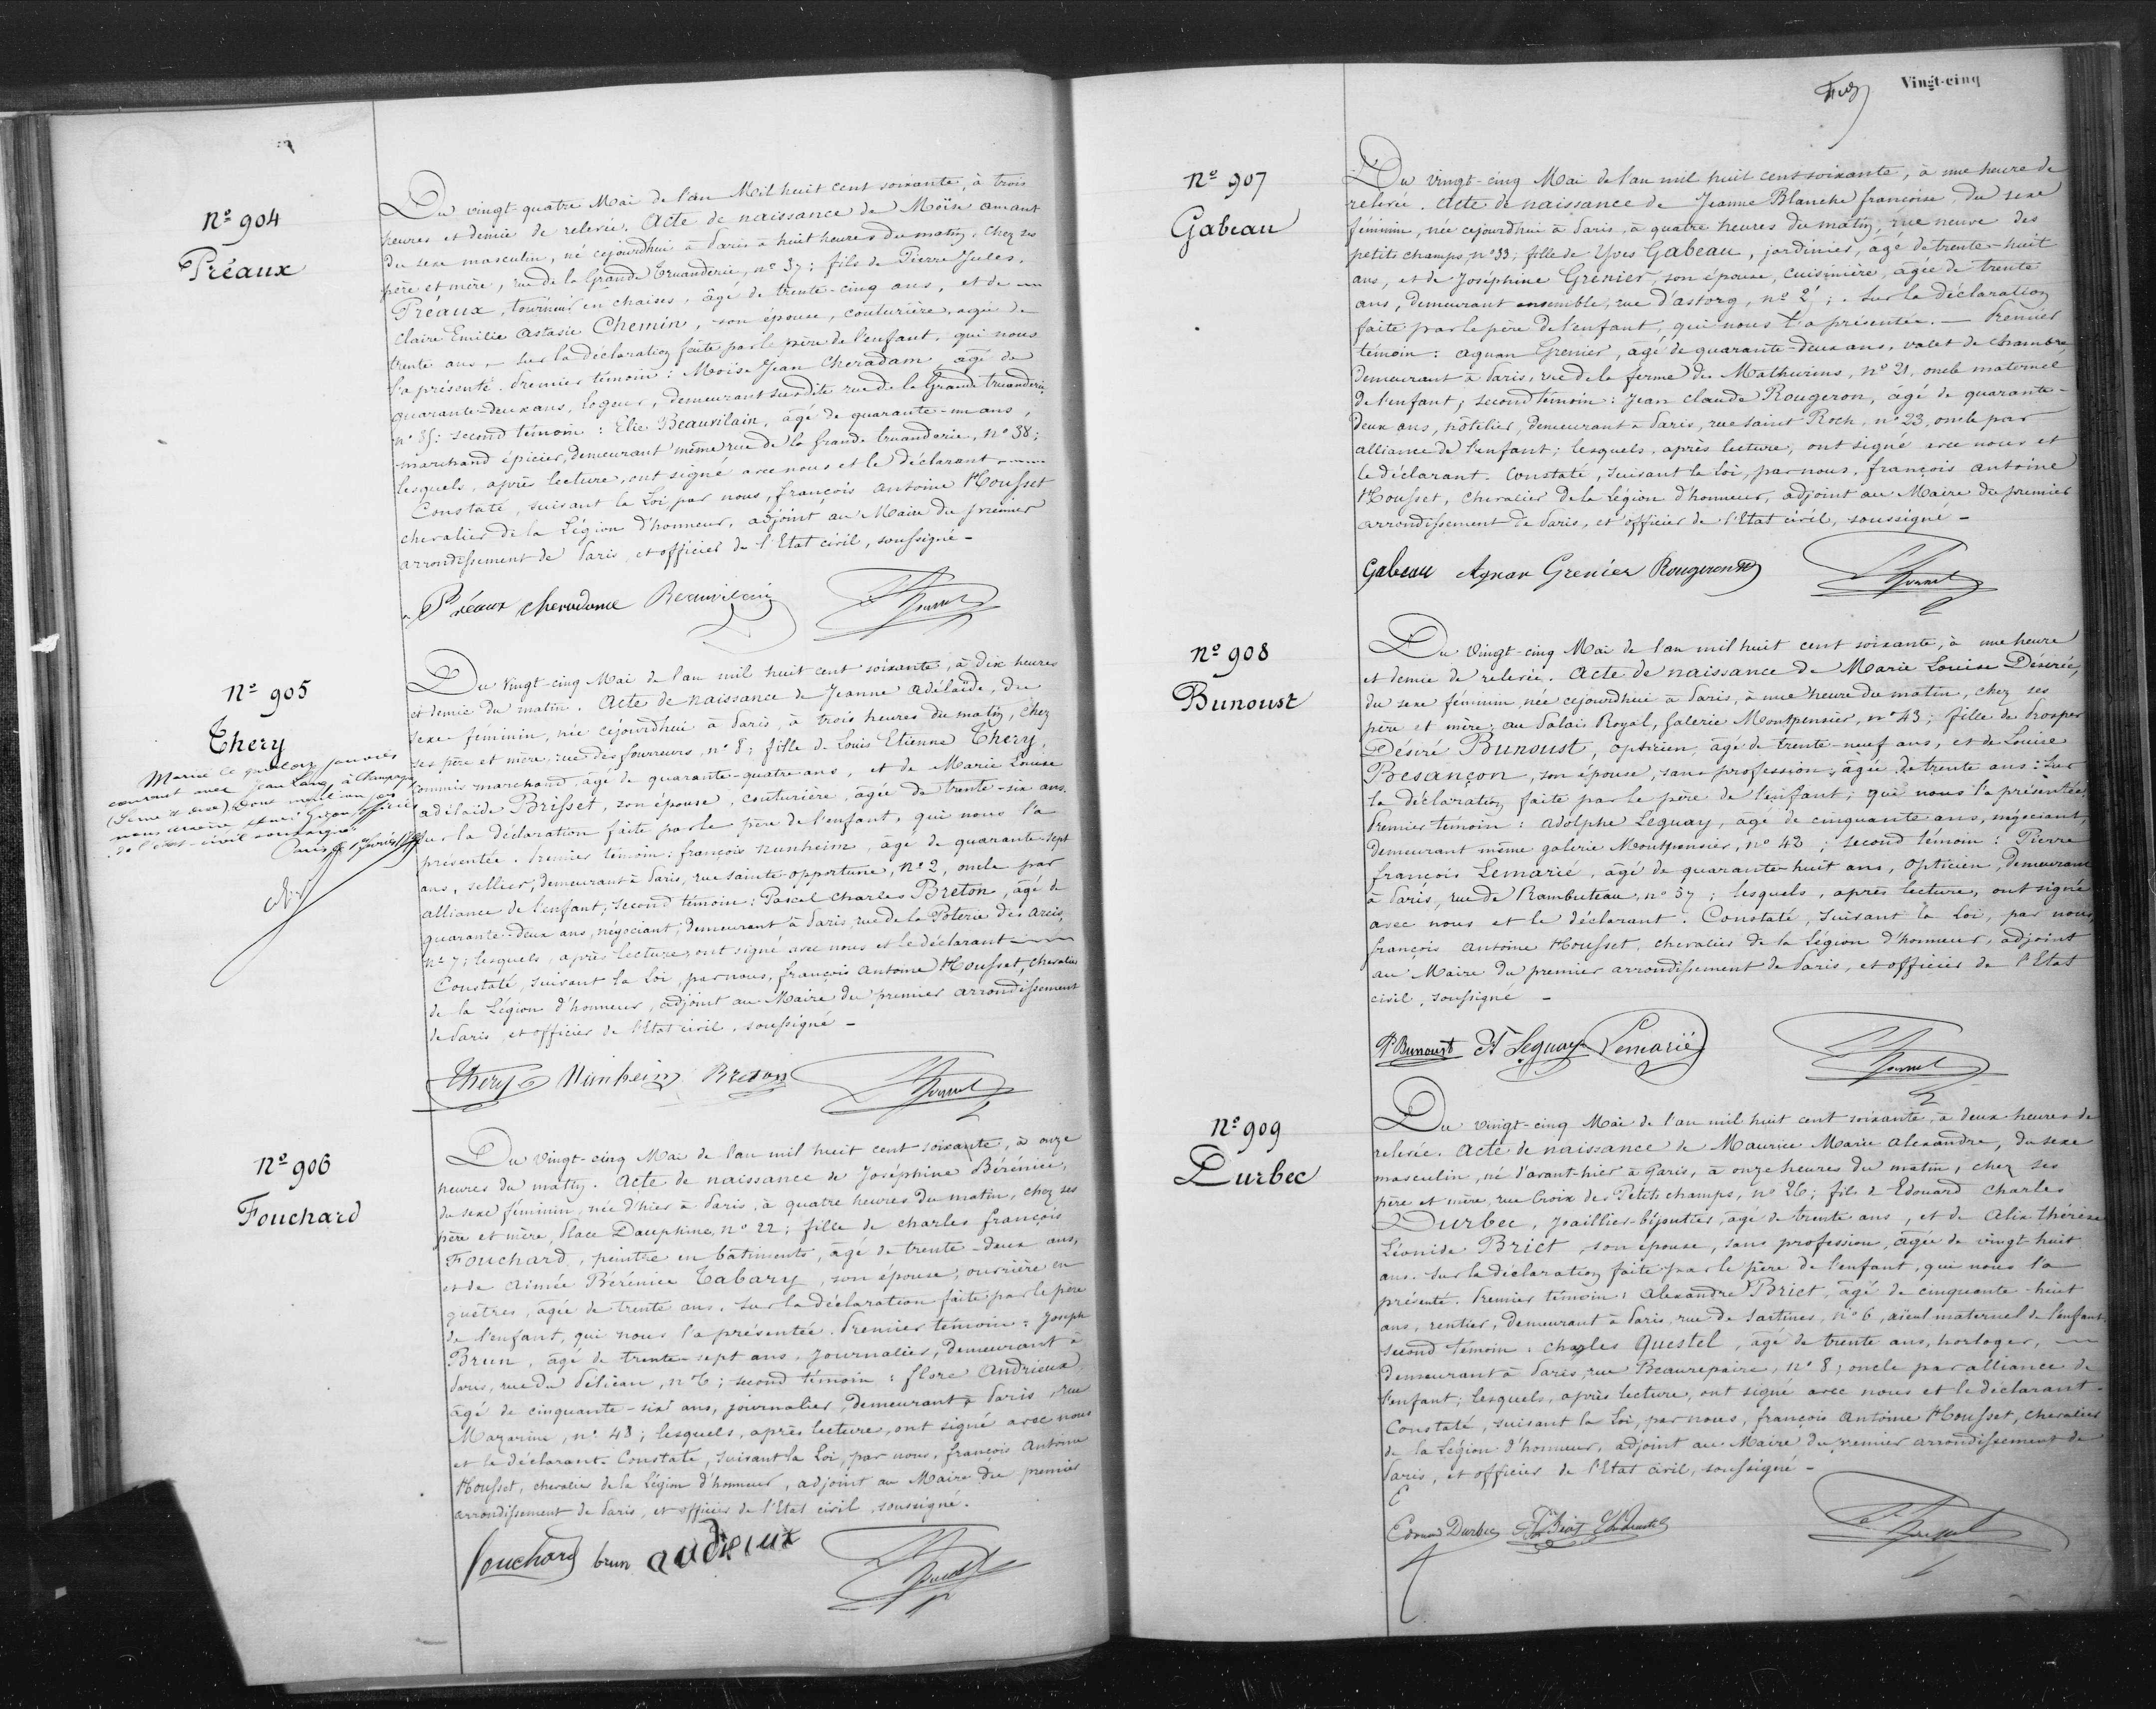 Nº 904
Préaux
Du vingt-quatre Mai de l'an Mil huit cent soixante, à trois
heures et demie de relevée. Acte de naissance de Moïse amant
du sexe masculin, né cejourdhui à Paris à huit heures du matin, chez ses
père et mère, rue de la Grande Truanderie, nº 37; fils de Pierre Jules,
Préaux, tourneur en chaises, âgé de trente-cinq ans, et de
Claire Emilie astasie Chemin, son épouse, couturière, agée de
trente ans, - Sur la déclaration faite par le père de l'enfant, qui nous
l'a présenté. Premier témoin: Moise Jean Cheradam, agé de
quarante-deux ans, logeur, demeurant susdite rue de la Grande truanderie,
nº 35; second témoin: Elie Beauvilain, âgé de quarante-un ans,
marchand épicier, demeurant même rue de la Grande truanderie, nº 38;
lesquels, après lecture, ont signé avec nous et le déclarant
Constaté, suivant la Loi, par nous, françois antoine Housset
chevalier de la Légion d'honneur, adjoint au Maire du premier
arrondissement de Paris, et officier de l'Etat civil, soussigné -
Préaux cheradame Beauvilain
Nº 905
Thery
Du vingt-cinq Mai de l'an mil huit cent soixante, à dix heures
et demie du matin. Acte de naissance de Jeanne adélaïde, du
sexe féminin, née cejourdhui à Paris, à trois heures du matin, chez
ses père et mère, rue des fourreurs, nº 8; fille de Louis Etienne Thery,
commis marchand, âgé de quarante-quatre ans, et de Marie Louise
adélaide Brisset, son épouse, couturière, âgée de trente-six ans.
Sur la déclaration faite par le père de l'enfant, qui nous l'a
présentée. Premier témoin: françois Nunheim, âgé de quarante-sept
ans, sellier, demeurant à Paris, rue sainte-opportune, nº 2, oncle par
alliance de l'enfant; second témoin: Pascal Charles Breton, âgé de
quarante-deux ans, négociant, demeurant à Paris, rue de la Poterie des arcis,
nº 7; lesquels, après lecture, ont signé avec nous et le déclarant
Constaté, suivant la Loi, par nous, françois antoine Housset, chevalier
de la Légion d'honneur, adjoint au Maire du premier arrondissement
de Paris, et officier de l'Etat civil, soussigné -
Thery Nunheim Breton
janvier
courant avec Jean à Champagne
(Seine & oise) Dont mention par
nous officier
de l'état-civil soussigné
Paris
Nº 906
Fouchard
Du Vingt-cinq Mai de l'an mil huit cent soixante, à onze
heures du matin. Acte de naissance de Joséphine Bérénice,
du sexe féminin, née d'hier à Paris, à quatre heures du matin, chez ses
père et mère, Place Dauphine, nº 22; fille de charles françois
Fouchard, peintre en bâtiments, âgé de trente-deux ans,
et de Aimée Bérénice Tabary, son épouse, ouvrière en
guêtres, agée de trente ans. Sur la déclaration faite par le père
de l'enfant, qui nous l'a présentée. Premier témoin: Joseph
Brun, âgé de trente-sept ans, journalier, demeurant à
Paris, rue du Pélican, nº 6; second témoin: flore Andrieux
âgé de cinquante-six ans, journalier, demeurant à Paris, rue
Mazarine, nº 48; lesquels, après lecture, ont signé avec nous
et le déclarant. Constaté, suivant la Loi, par nous, françois Antoine
Housset, chevalier de la Légion d'honneur, adjoint au Maire du premier
arrondissement de Paris, et officier de l'Etat civil, soussigné.
fouchard brun andrieux
Vingt-cinq
Nº 907
Gabeau
Du vingt-cinq Mai de l'an mil huit cent soixante, à une heure de
relevée. Acte de naissance de Jeanne Blanche françoise, du sexe
féminin, née cejourdhui à Paris, à quatre heures du matin, rue neuve des
petits champs, nº 33; fille de Yves Gabeau, jardinier, âgé de trente-huit
ans, et de Joséphine Grenier, son épouse, cuisinière, agée de trente
ans, demeurant ensemble, rue d'astorg, nº 2; Sur la déclaration
faite par le père de l'enfant, qui nous l'a présentée. - Premier
témoin: agnan Grenier, âgé de quarante-deux ans, valet de chambre
demeurant à Paris, rue de la ferme des Mathurins, nº 21, oncle maternel
de l'enfant; second témoin: Jean claude Rougeron, âgé de quarante-
deux ans, hôtelier, demeurant à Paris, rue saint Roch, nº 23, oncle par
alliance de l'enfant; lesquels, après lecture, ont signé avec nous et
le déclarant. Constaté, suivant la Loi, par nous, françois antoine
Housset, chevalier de la Légion d'honneur, adjoint au Maire du premier
arrondissement de Paris, et officier de l'Etat civil, soussigné -
Gabeau Agnan Grenier Rougeron
Nº 908
Bunoust
Du Vingt-cinq Mai de l'an mil huit cent soixante, à une heure
et demie de relevée. Acte de naissance de Marie Louise Désirée,
du sexe féminin, née cejourdhui à Paris, à une heure du matin, chez ses
père et mère, au Palais Royal, Galerie Montpensier, nº 43; fille de Prosper
Désiré Bunoust, opticien, âgé de trente-neuf ans, et de Louise
Besançon, son épouse, sans profession, âgée de trente ans: Sur
la déclaration faite par le père de l'enfant; qui nous l'a présentée.
Premier témoin: adolphe Leguay, âgé de cinquante ans, négociant,
demeurant même galerie Montpensier, nº 42; second témoin: Pierre
françois Lemarié, âgé de quarante-huit ans, opticien, demeurant
à Paris, rue de Rambuteau, nº 57; lesquels, après lecture, ont signé
avec nous et le déclarant. Constaté, suivant la Loi, par nous,
françois antoine Housset, chevalier de la Légion d'honneur, adjoint
au Maire du premier arrondissement de Paris, et officier de l'Etat
civil, soussigné -
P Bunoust A Leguay Lemarié
Nº 909
Durbec
Du vingt-cinq Mai de l'an mil huit cent soixante, à deux heures de
relevée. Acte de naissance de Maurice Marie alexandre, du sexe
masculin, né d'avant-hier à Paris, à onze heures du matin, chez ses
père et mère, rue Croix des Petits champs, nº 26; fils de Edouard Charles
Durbec, joaillier-bijoutier, âgé de trente ans, et de Alix thérèse
Léonide Brict, son épouse, sans profession, âgée de vingt-huit
ans. Sur la déclaration faite par le père de l'enfant, qui nous l'a
présenté. Premier témoin: alexandre Brict, âgé de cinquante-huit
ans, rentier, demeurant à Paris, rue de Sartines, nº 6, aïeul maternel de l'enfant,
second témoin: charles Questel, âgé de trente ans, horloger,
demeurant à Paris, rue Beaurepaire, nº 8; oncle par alliance de
l'enfant; lesquels, après lecture, ont signé avec nous et le déclarant.
Constaté, suivant la Loi, par nous, françois Antoine Housset, chevalier
de la Légion d'honneur, adjoint au Maire du premier arrondissement de
Paris, et officier de l'Etat civil, soussigné -
Edouard Durbec Brict Ch Questel